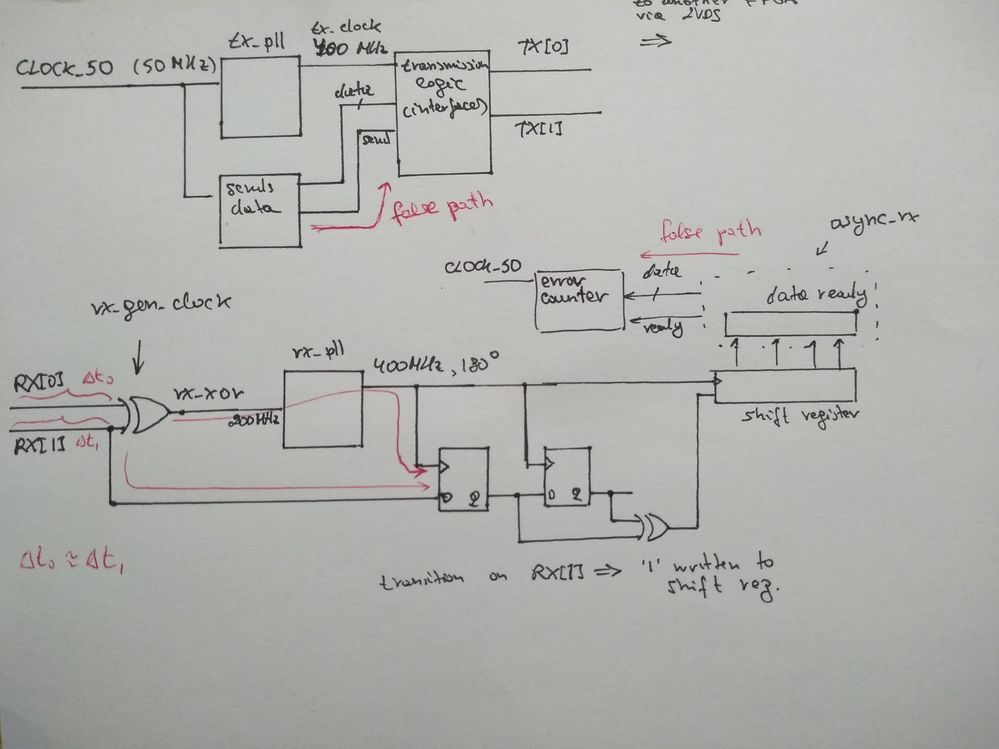 to another FPGA
via LVDS
tx_pll
tx_clock
400 MHz
CLOCK_50 (50 MHz)
transmission
logic
(interfaces)
TX[0]
TX[1]
data
send
sends
data
false path
async_rx
false path
CLOCK_50
error
counter
data
ready
data ready
rx_gen_clock
rx_pll
400MHz, 180°
RX[0] Δt₀
rx_xor
200MHz
RX[1] Δt₁
shift register
D Q
D Q
Δt₀ ≈ Δt₁
transition on RX[1] ⇒ '1' written to
shift reg.